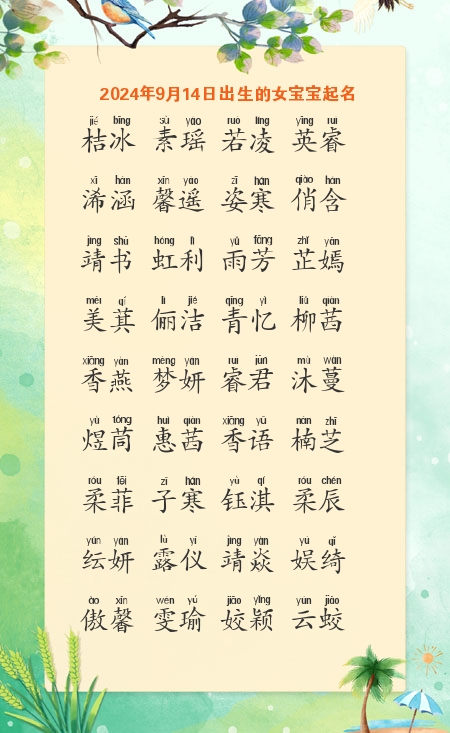 2024年9月14日出生的女宝宝起名
jié bīng sù yáo ruò líng yīng ruì
桔冰 素瑶 若凌 英睿
xī hán xīn yáo zī hán qiào hán
浠涵 馨遥 姿寒 俏含
jìng shū hóng lì yǔ fāng zhǐ yān
靖书 虹利 雨芳 芷嫣
měi qí lì jié qīng yì liǔ qiàn
美萁 俪洁 青忆 柳茜
xiāng yàn mèng yán ruì jūn mù wàn
香燕 梦妍 睿君 沐蔓
yù tóng huì qiàn xiāng yǔ nán zhī
煜茼 惠茜 香语 楠芝
róu fēi zǐ hán yù qí róu chén
柔菲 子寒 钰淇 柔辰
yún yán lù yí jìng yàn yú qǐ
纭妍 露仪 靖焱 娱绮
ào xīn wén yú jiāo yǐng yún jiāo
傲馨 雯瑜 姣颖 云蛟